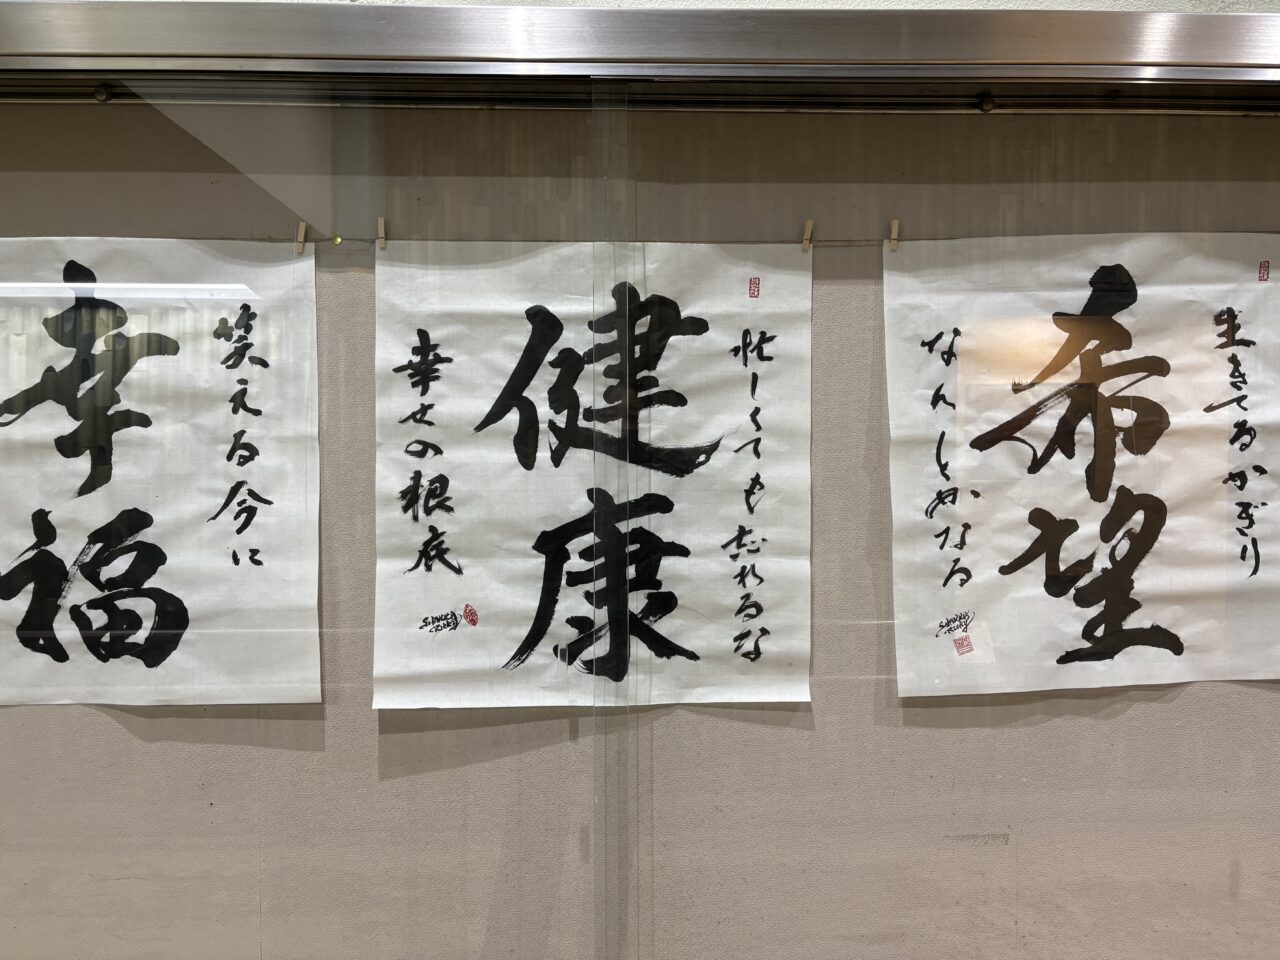 生きてるかぎり
希望
なんとかなる
忙しくても忘れるな
健康
幸せの根底
笑える今に
幸福